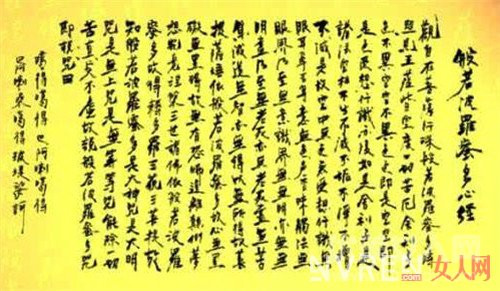 般若波羅蜜多心經
觀自在菩薩行深般若波羅蜜多時
照見五蘊皆空度一切苦厄舍利子
色不異空空不異色色即是空空即
是色受想行識亦復如是舍利子是
諸法空相不生不滅不垢不淨不增
不減是故空中無色無受想行識無
眼耳鼻舌身意無色聲香味觸法無
眼界乃至無意識界無無明亦無無
明盡乃至無老死亦無老死盡無苦
集滅道無智亦無得以無所得故菩
提薩埵依般若波羅蜜多故心無罣
礙無罣礙故無有恐怖遠離顛倒夢
想究竟涅槃三世諸佛依般若波羅
蜜多故得阿耨多羅三藐三菩提故
知般若波羅蜜多是大神咒是大明
咒是無上咒是無等等咒能除一切
苦真實不虛故說般若波羅蜜多咒
即說咒曰
女人网